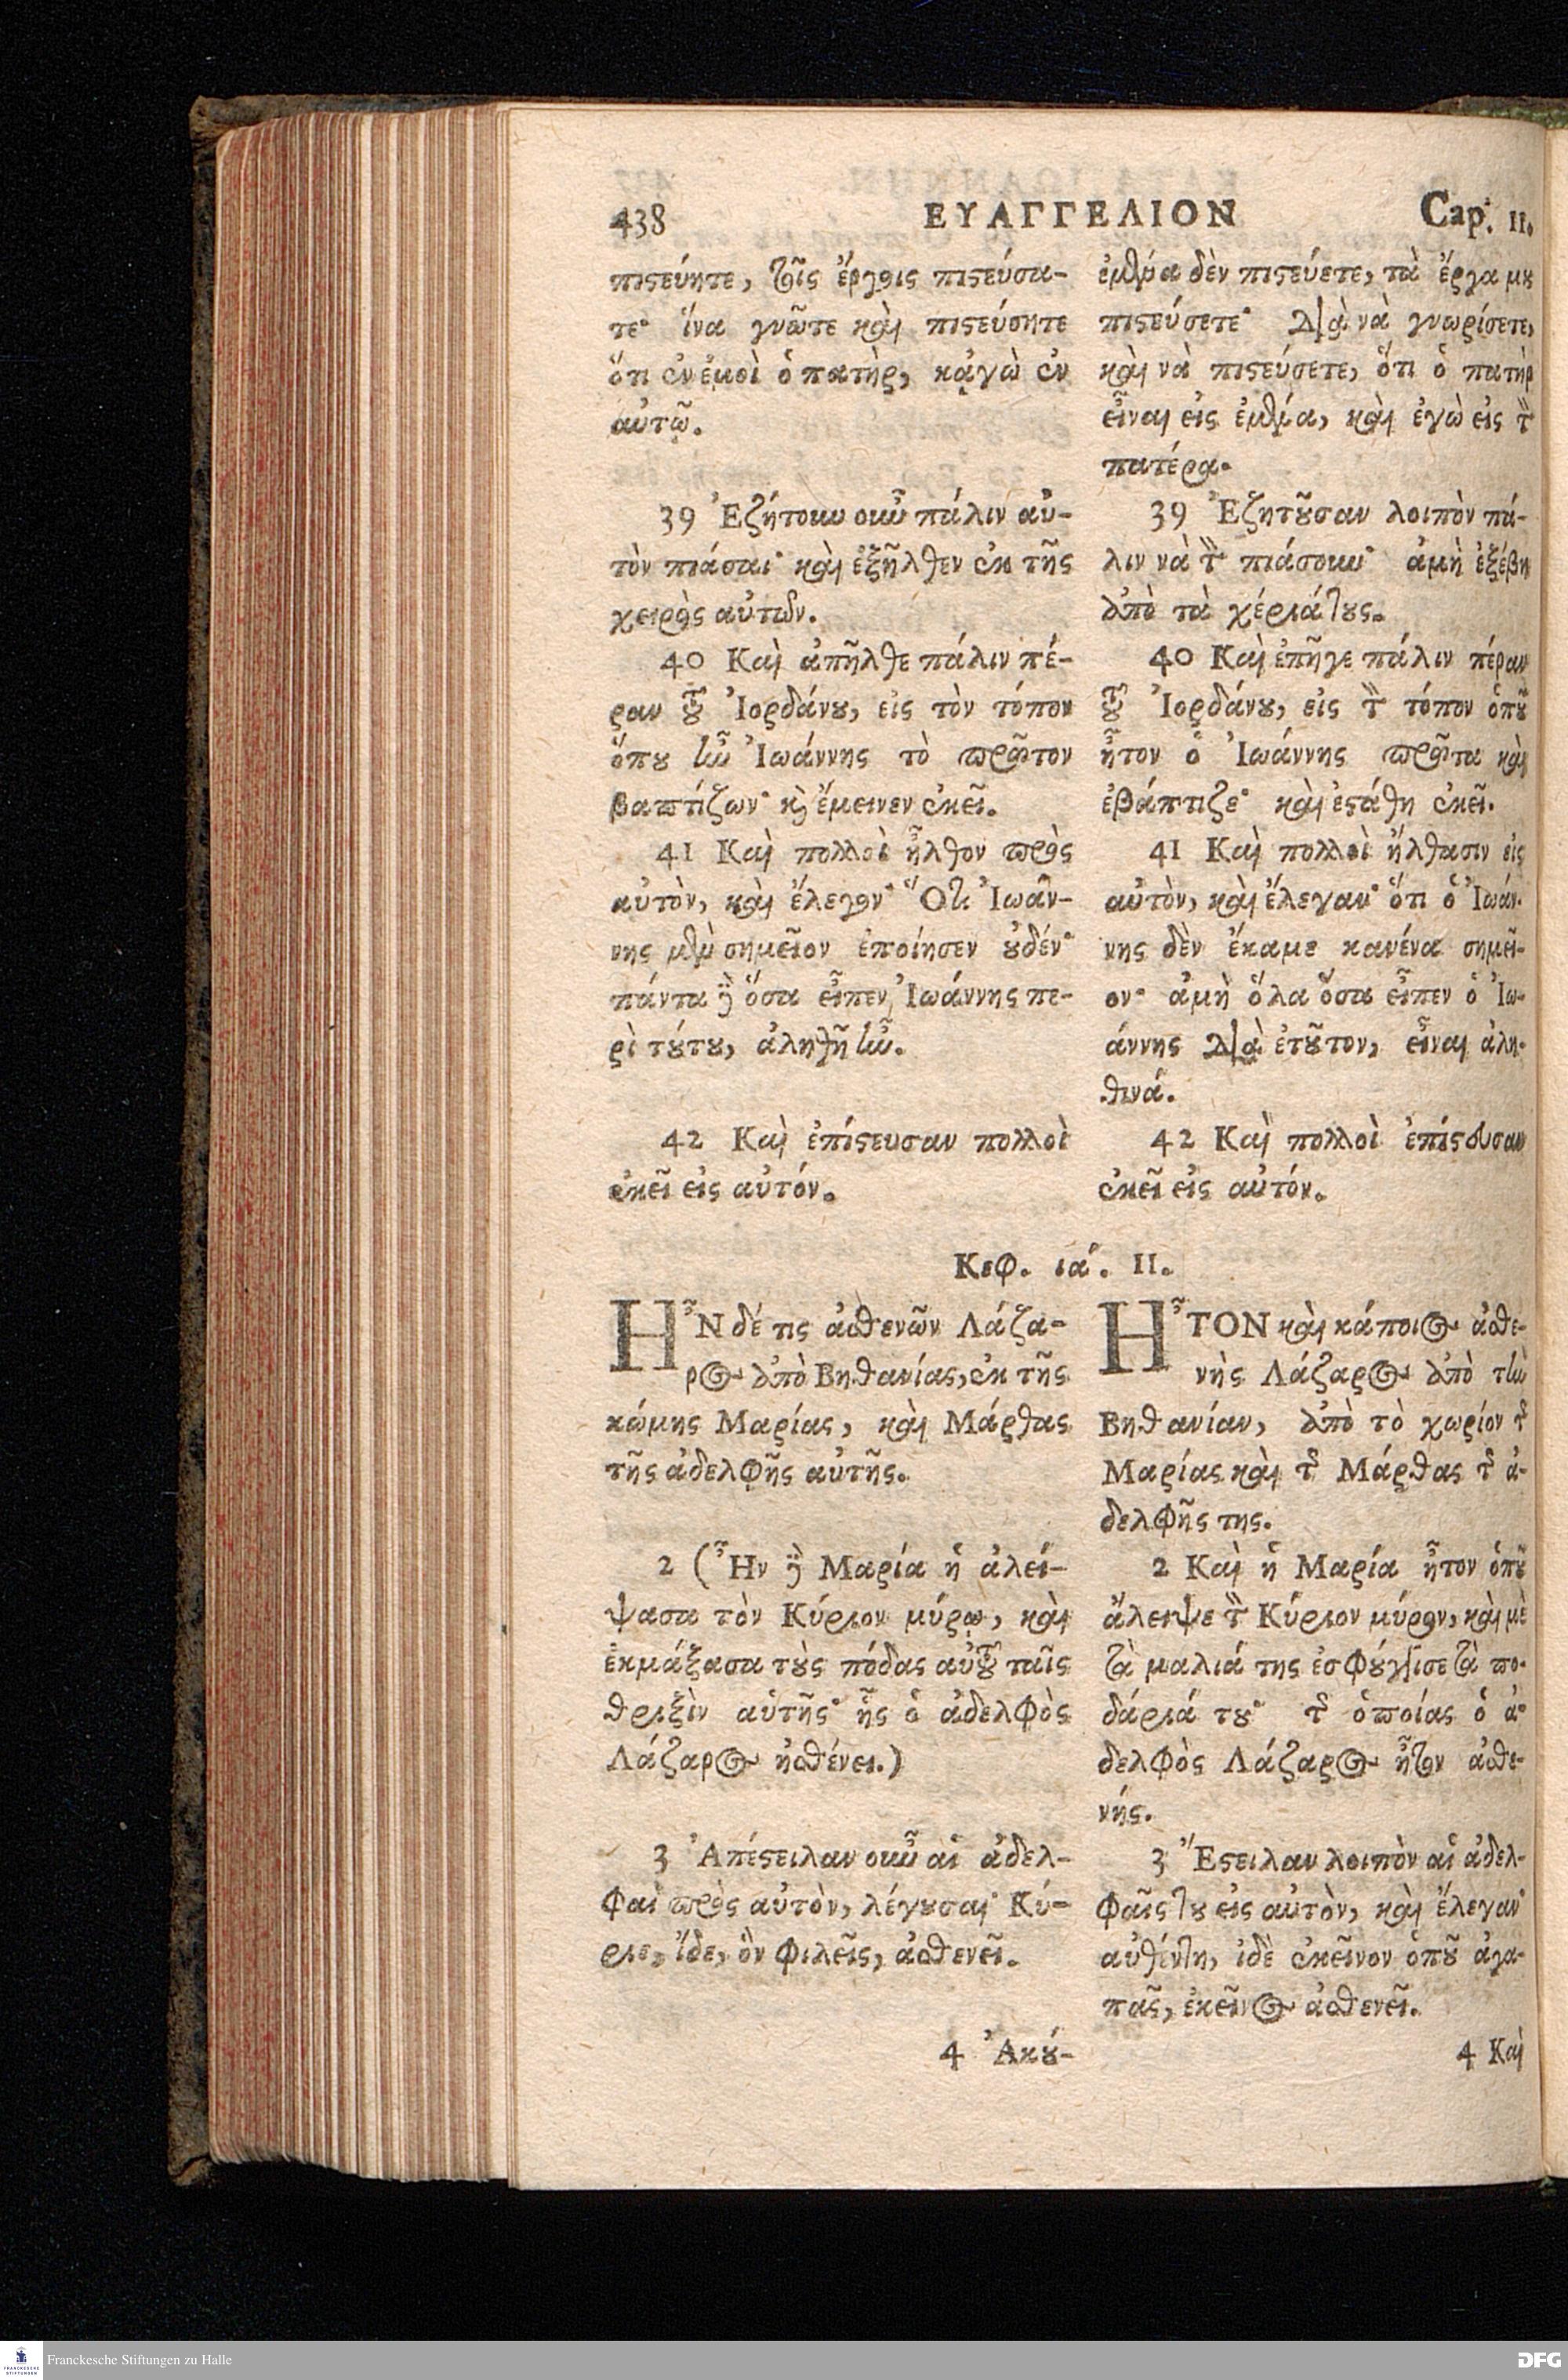 438 ΕΥΑΓΓΕΛΙΟΝ Cap. 11.
πιϛεύητε, τοῖς ἔργοις πιϛεύσα-
τε· ἵνα γνῶτε καὶ πιϛεύσητε
ὅτι ἐν ἐμοὶ ὁ πατὴρ, κᾀγὼ ἐν
αὐτῷ.
39 Ἐζήτουν οὖν πάλιν αὐ-
τὸν πιάσαι· καὶ ἐξῆλθεν ἐκ τῆς
χειρὸς αὐτῶν.
40 Καὶ ἀπῆλθε πάλιν πέ-
ραν τȣ͂ Ἰορδάνȣ, εἰς τὸν τόπον
ὅπȣ ἦν Ἰωάννης τὸ πρῶτον
βαπτίζων· κὶ ἔμεινεν ἐκεῖ.
41 Καὶ πολλοὶ ἦλθον πρὸς
αὐτὸν, καὶ ἔλεγον· Ὅτι Ἰωάν-
νης μὲν σημεῖον ἐποίησεν ȣ̓δέν·
πάντα δὲ ὅσα εἶπεν Ἰωάννης πε-
ρὶ τȣ́τȣ, ἀληθῆ ἦν.
42 Καὶ ἐπίϛευσαν πολλοὶ
ἐκεῖ εἰς αὐτόν.
ἐμένα δὲν πιϛεύετε, τὰ ἔργα μȣ
πιϛεύσετε· διὰ νὰ γνωρίσετε,
καὶ νὰ πιϛεύσετε, ὅτι ὁ πατὴρ
εἶναι εἰς ἐμένα, καὶ ἐγὼ εἰς τὸν
πατέρα.
39 Ἐζητȣ͂σαν λοιπὸν πά-
λιν νὰ τὸν πιάσουν· ἀμὴ ἐξέβη
ἀπὸ τὰ χέριάτȣς.
40 Καὶ ἐπῆγε πάλιν πέραν
τȣ͂ Ἰορδάνȣ, εἰς τὸν τόπον ὁπȣ͂
ἦτον ὁ Ἰωάννης πρῶτα καὶ
ἐβάπτιζε· καὶ ἐϛάθη ἐκεῖ.
41 Καὶ πολλοὶ ἤλθασιν εἰς
αὐτὸν, καὶ ἔλεγαν· ὅτι ὁ Ἰωάν-
νης δὲν ἔκαμε κανένα σημεῖ-
ον· ἀμὴ ὅλα ὅσα εἶπεν ὁ Ἰω-
άννης διὰ ἐτȣ͂τον, εἶναι ἀλη-
θινά.
42 Καὶ πολλοὶ ἐπίϛευσαν
ἐκεῖ εἰς αὐτόν.
Κεφ. ια΄. 11.
ἮΝ δέ τις ἀσθενῶν Λάζα-
ρος ἀπὸ Βηθανίας, ἐκ τῆς
κώμης Μαρίας, καὶ Μάρθας
τῆς ἀδελφῆς αὐτῆς.
2 (Ἦν δὲ Μαρία ἡ ἀλεί-
ψασα τὸν Κύριον μύρῳ, καὶ
ἐκμάξασα τȣ̀ς πόδας αὐτȣ͂ ταῖς
θριξὶν αὑτῆς· ἧς ὁ ἀδελφὸς
Λάζαρος ἠσθένει.)
3 Ἀπέϛειλαν οὖν αἱ ἀδελ-
φαὶ πρὸς αὐτὸν, λέγȣσαι· Κύ-
ριε, ἴδε, ὃν φιλεῖς, ἀσθενεῖ.
4 Ἀκȣ́-
ἮΤΟΝ καὶ κάποιος ἀσθε-
νὴς Λάζαρος ἀπὸ τὴν
Βηθανίαν, ἀπὸ τὸ χωρίον τῆς
Μαρίας καὶ τῆς Μάρθας τῆς ἀ-
δελφῆς της.
2 Καὶ ἡ Μαρία ἦτον ὁπȣ͂
ἄλειψε τὸν Κύριον μύρον, καὶ μὲ
τὰ μαλιά της ἐσφȣ́γγισε τὰ πο-
δάριά τȣ· τῆς ὁποίας ὁ ἀ-
δελφὸς Λάζαρος ἦτον ἀσθε-
νής.
3 Ἔϛειλαν λοιπὸν αἱ ἀδελ-
φαῖς τȣ εἰς αὐτὸν, καὶ ἔλεγαν·
αὐθέντη, ἰδὲ ἐκεῖνον ὁπȣ͂ ἀγα-
πᾶς, ἐκεῖνος ἀσθενεῖ.
4 Καὶ
FRANCKESCHE STIFTUNGEN
Franckesche Stiftungen zu Halle
DFG